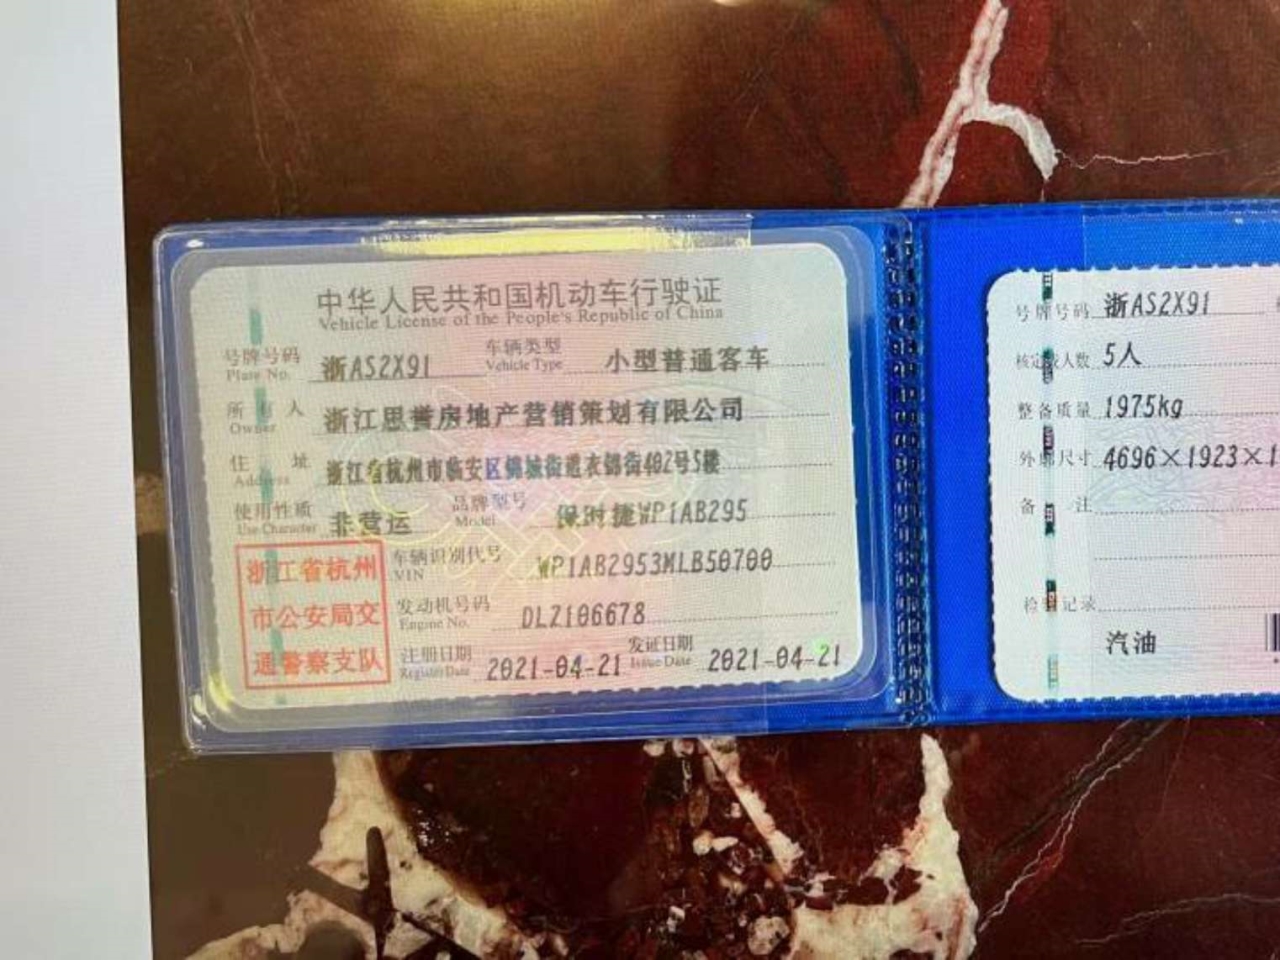 中华人民共和国机动车行驶证
Vehicle License of the People's Republic of China
号牌号码 浙AS2X91 车辆类型 小型普通客车
Plate No. Vehicle Type
所有人 浙江思誉房地产营销策划有限公司
Owner
住址 浙江省杭州市临安区锦城街道衣锦街402号5楼
Address
使用性质 非营运 品牌型号 保时捷WP1AB295
Use Character Model
浙江省杭州
市公安局交
通警察支队
车辆识别代号 WP1AB2953MLB50700
VIN
发动机号码 DLZ106678
Engine No.
注册日期 2021-04-21 发证日期 2021-04-21
Register Date Issue Date
号牌号码 浙AS2X91
核定载人数 5人
整备质量 1975kg
外廓尺寸 4696×1923×1
备注
检验记录
汽油